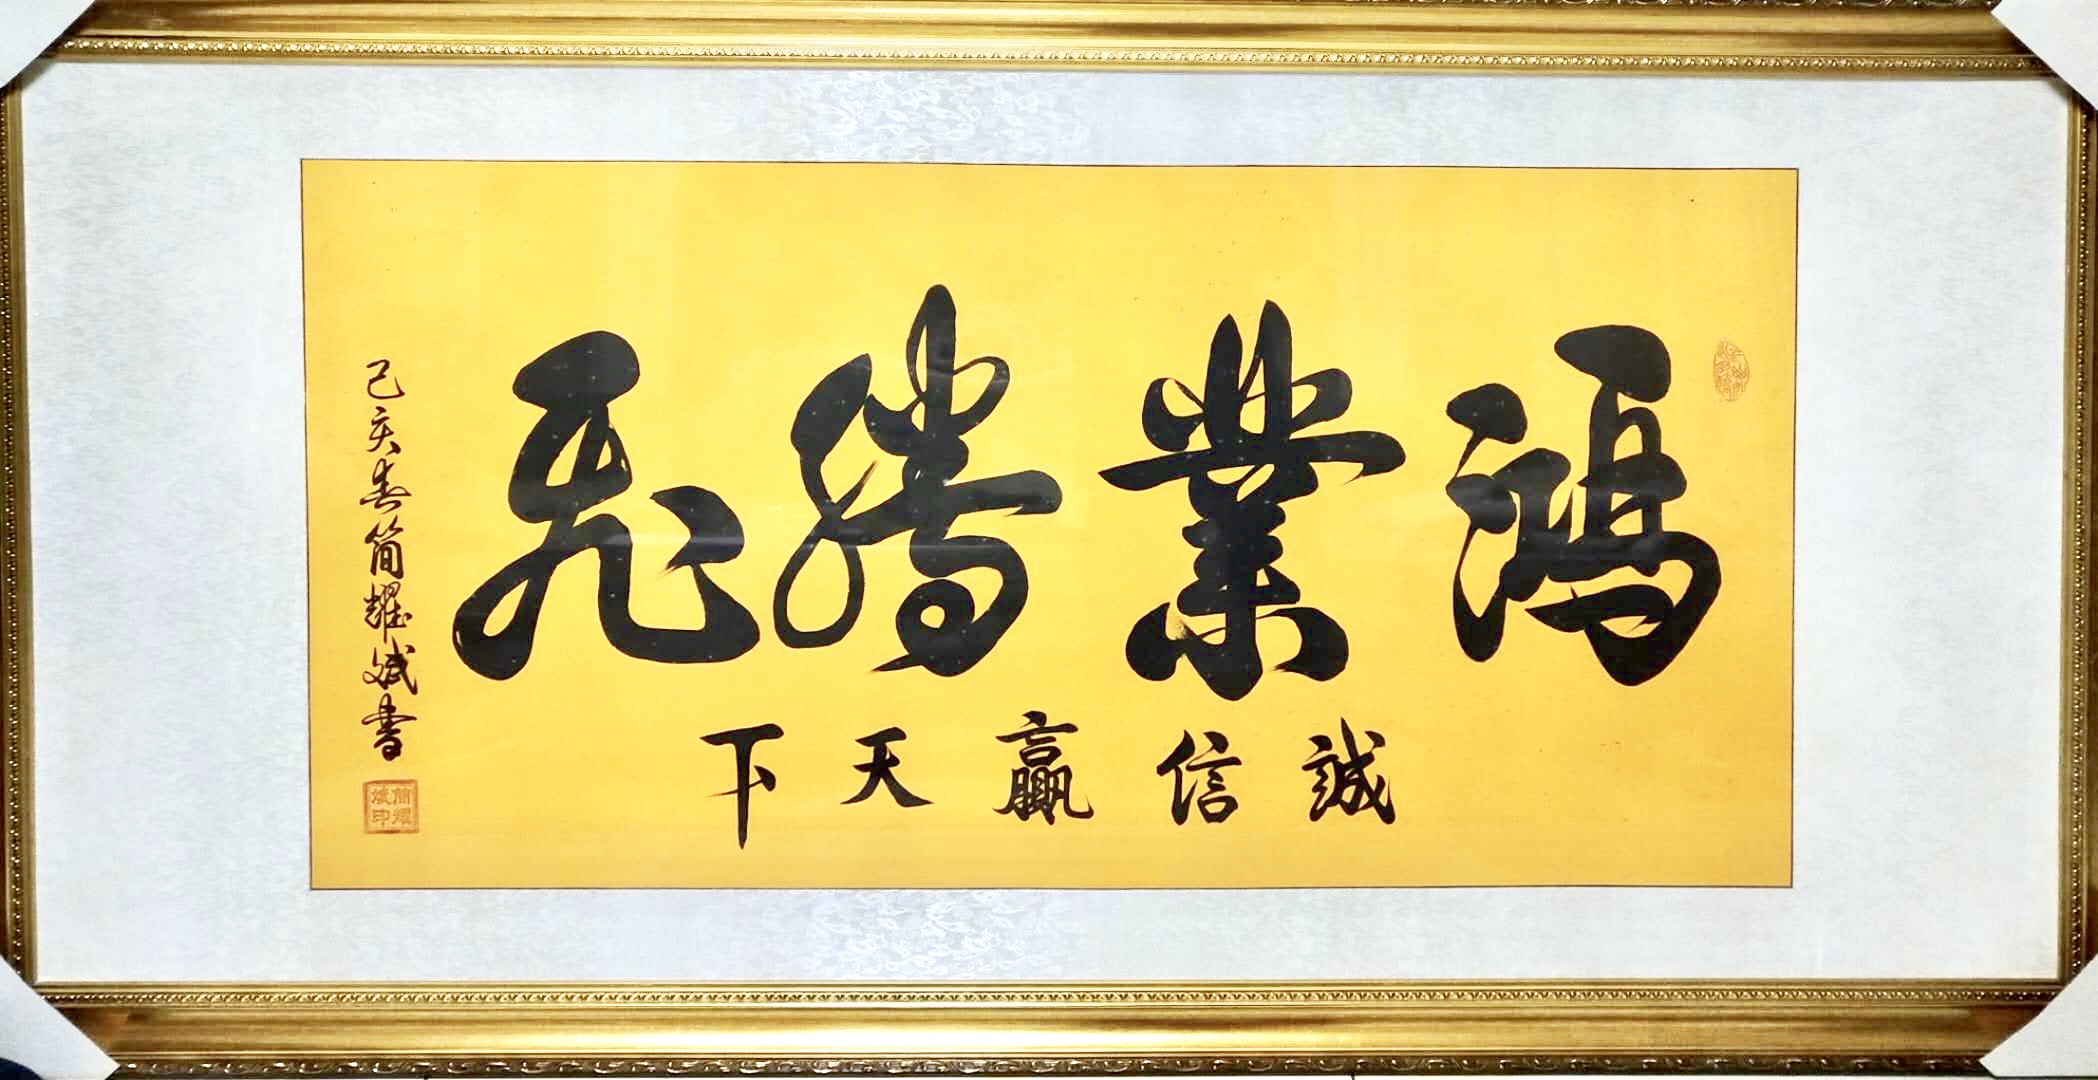 鴻業騰飛
誠信贏天下
己亥春簡耀斌書
簡耀斌印